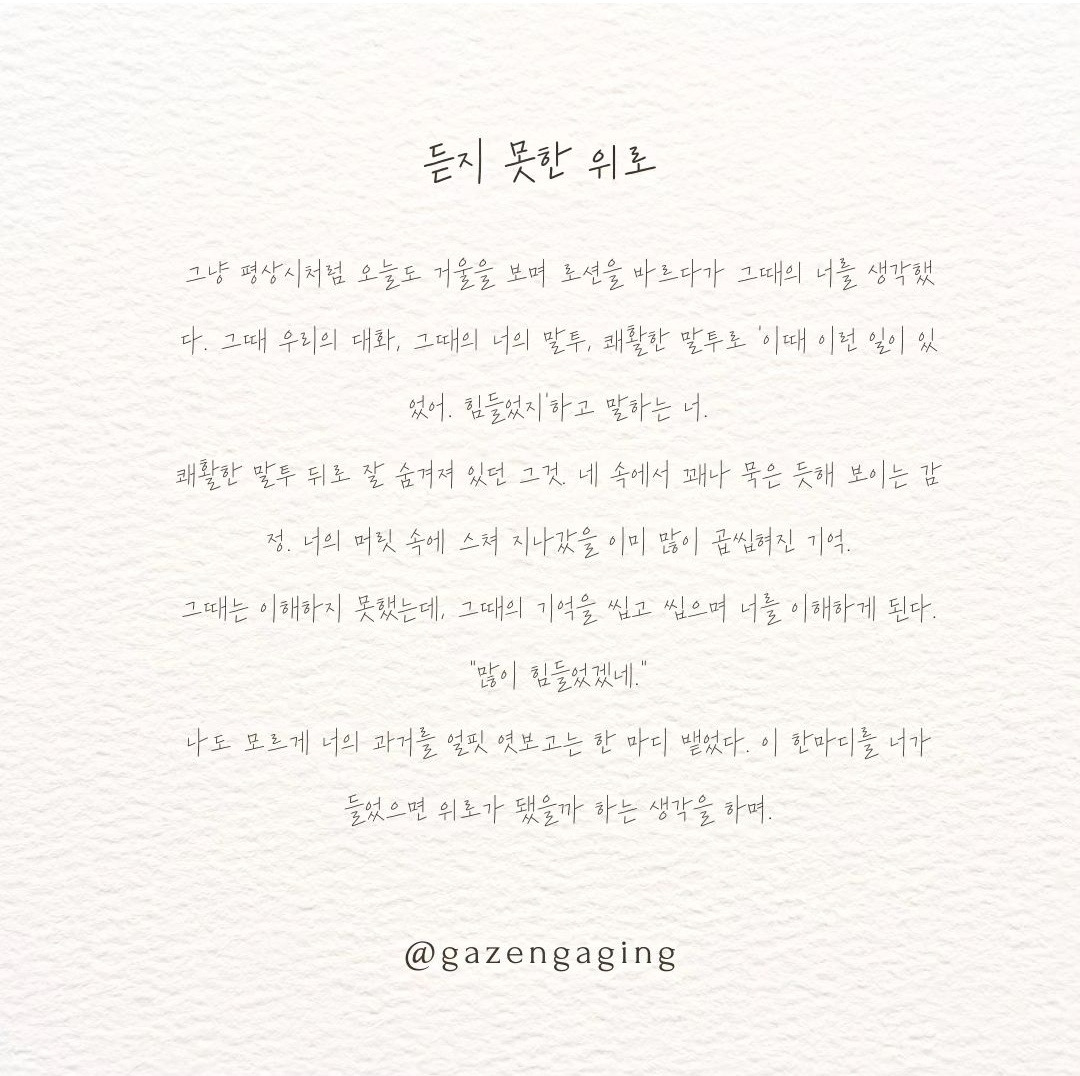 듣지 못한 위로
그냥 평상시처럼 오늘도 거울을 보며 로션을 바르다가 그때의 너를 생각했
다. 그때 우리의 대화, 그때의 너의 말투, 쾌활한 말투로 '이때 이런 일이 있
었어. 힘들었지'하고 말하는 너.
쾌활한 말투 뒤로 잘 숨겨져 있던 그것. 네 속에서 꽤나 묵은 듯해 보이는 감
정. 너의 머릿 속에 스쳐 지나갔을 이미 많이 곱씹혀진 기억.
그때는 이해하지 못했는데, 그때의 기억을 씹고 씹으며 너를 이해하게 된다.
"많이 힘들었겠네."
나도 모르게 너의 과거를 얼핏 엿보고는 한 마디 뱉었다. 이 한마디를 너가
들었으면 위로가 됐을까 하는 생각을 하며.
@gazengaging